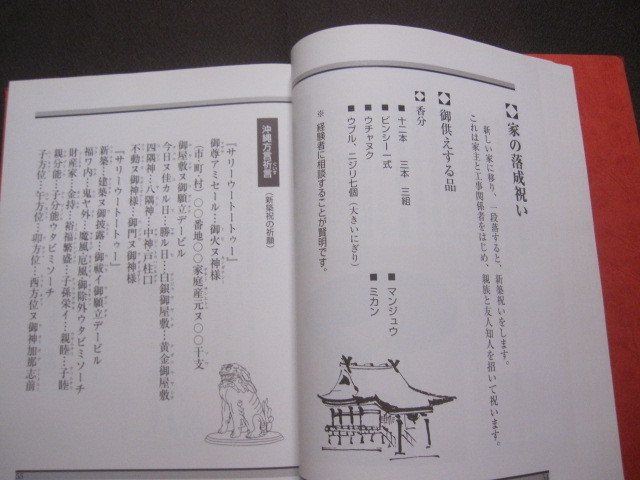 家の落成祝い
新しい家に移り、一段落すると、新築祝いをします。
これは家主と工事関係者をはじめ、親族と友人知人を招いて祝います。
御供えする品
香分
■十二本 三本 三組
■ビンシー一式
■ウチャヌク
■ウブル、ニジリ七個(大きいにぎり)
■マンジュウ
■ミカン
※ 経験者に相談することが賢明です。
沖縄方言祈言 (新築祝の祈願)
『サリーウートートゥー』
御尊アミセール…御火ヌ神様
(市・町・村)〇〇番地〇〇家庭産元ヌ〇〇干支
御屋敷ヌ御願立デービル
今日ヌ佳カル日…勝ル日…白銀御屋敷…黄金御屋敷
四隅神…八隅神…中神戸柱口
不動ヌ御神様…御門ヌ御神様
『サリーウートートゥー』
新築…建築ヌ御披露…御祓イ御願立デービル
福ワ内…鬼ヤ外…魔風厄風御除外ウタビミソーチ
財産家…金持…裕福繁盛…子孫栄イ…親睦…子睦
親分能…子分能ウタビミソーチ
子方位…午方位…卯方位…酉方位ヌ御神加那志前